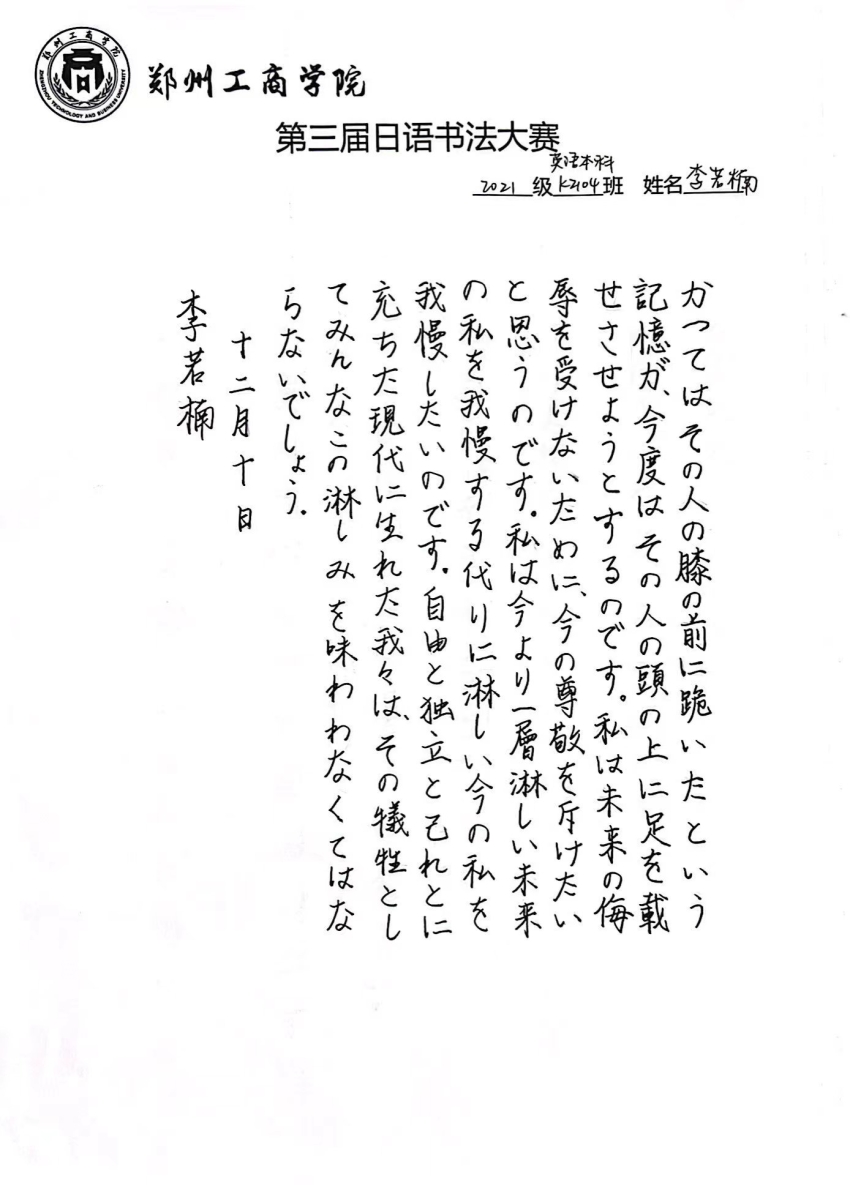 郑州工商学院
ZHENGZHOU TECHNOLOGY AND BUSINESS UNIVERSITY
郑州工商学院
第三届日语书法大赛
英语本科
2021 级 K2104 班 姓名 李若楠
かつてはその人の膝の前に跪いたという
記憶が、今度はその人の頭の上に足を載
せさせようとするのです。私は未来の侮
辱を受けないために、今の尊敬を斥けたい
と思うのです。私は今より一層淋しい未来
の私を我慢する代りに淋しい今の私を
我慢したいのです。自由と独立と己れとに
充ちた現代に生れた我々は、その犠牲とし
てみんなこの淋しみを味わわなくてはな
らないでしょう。
十二月十日
李若楠